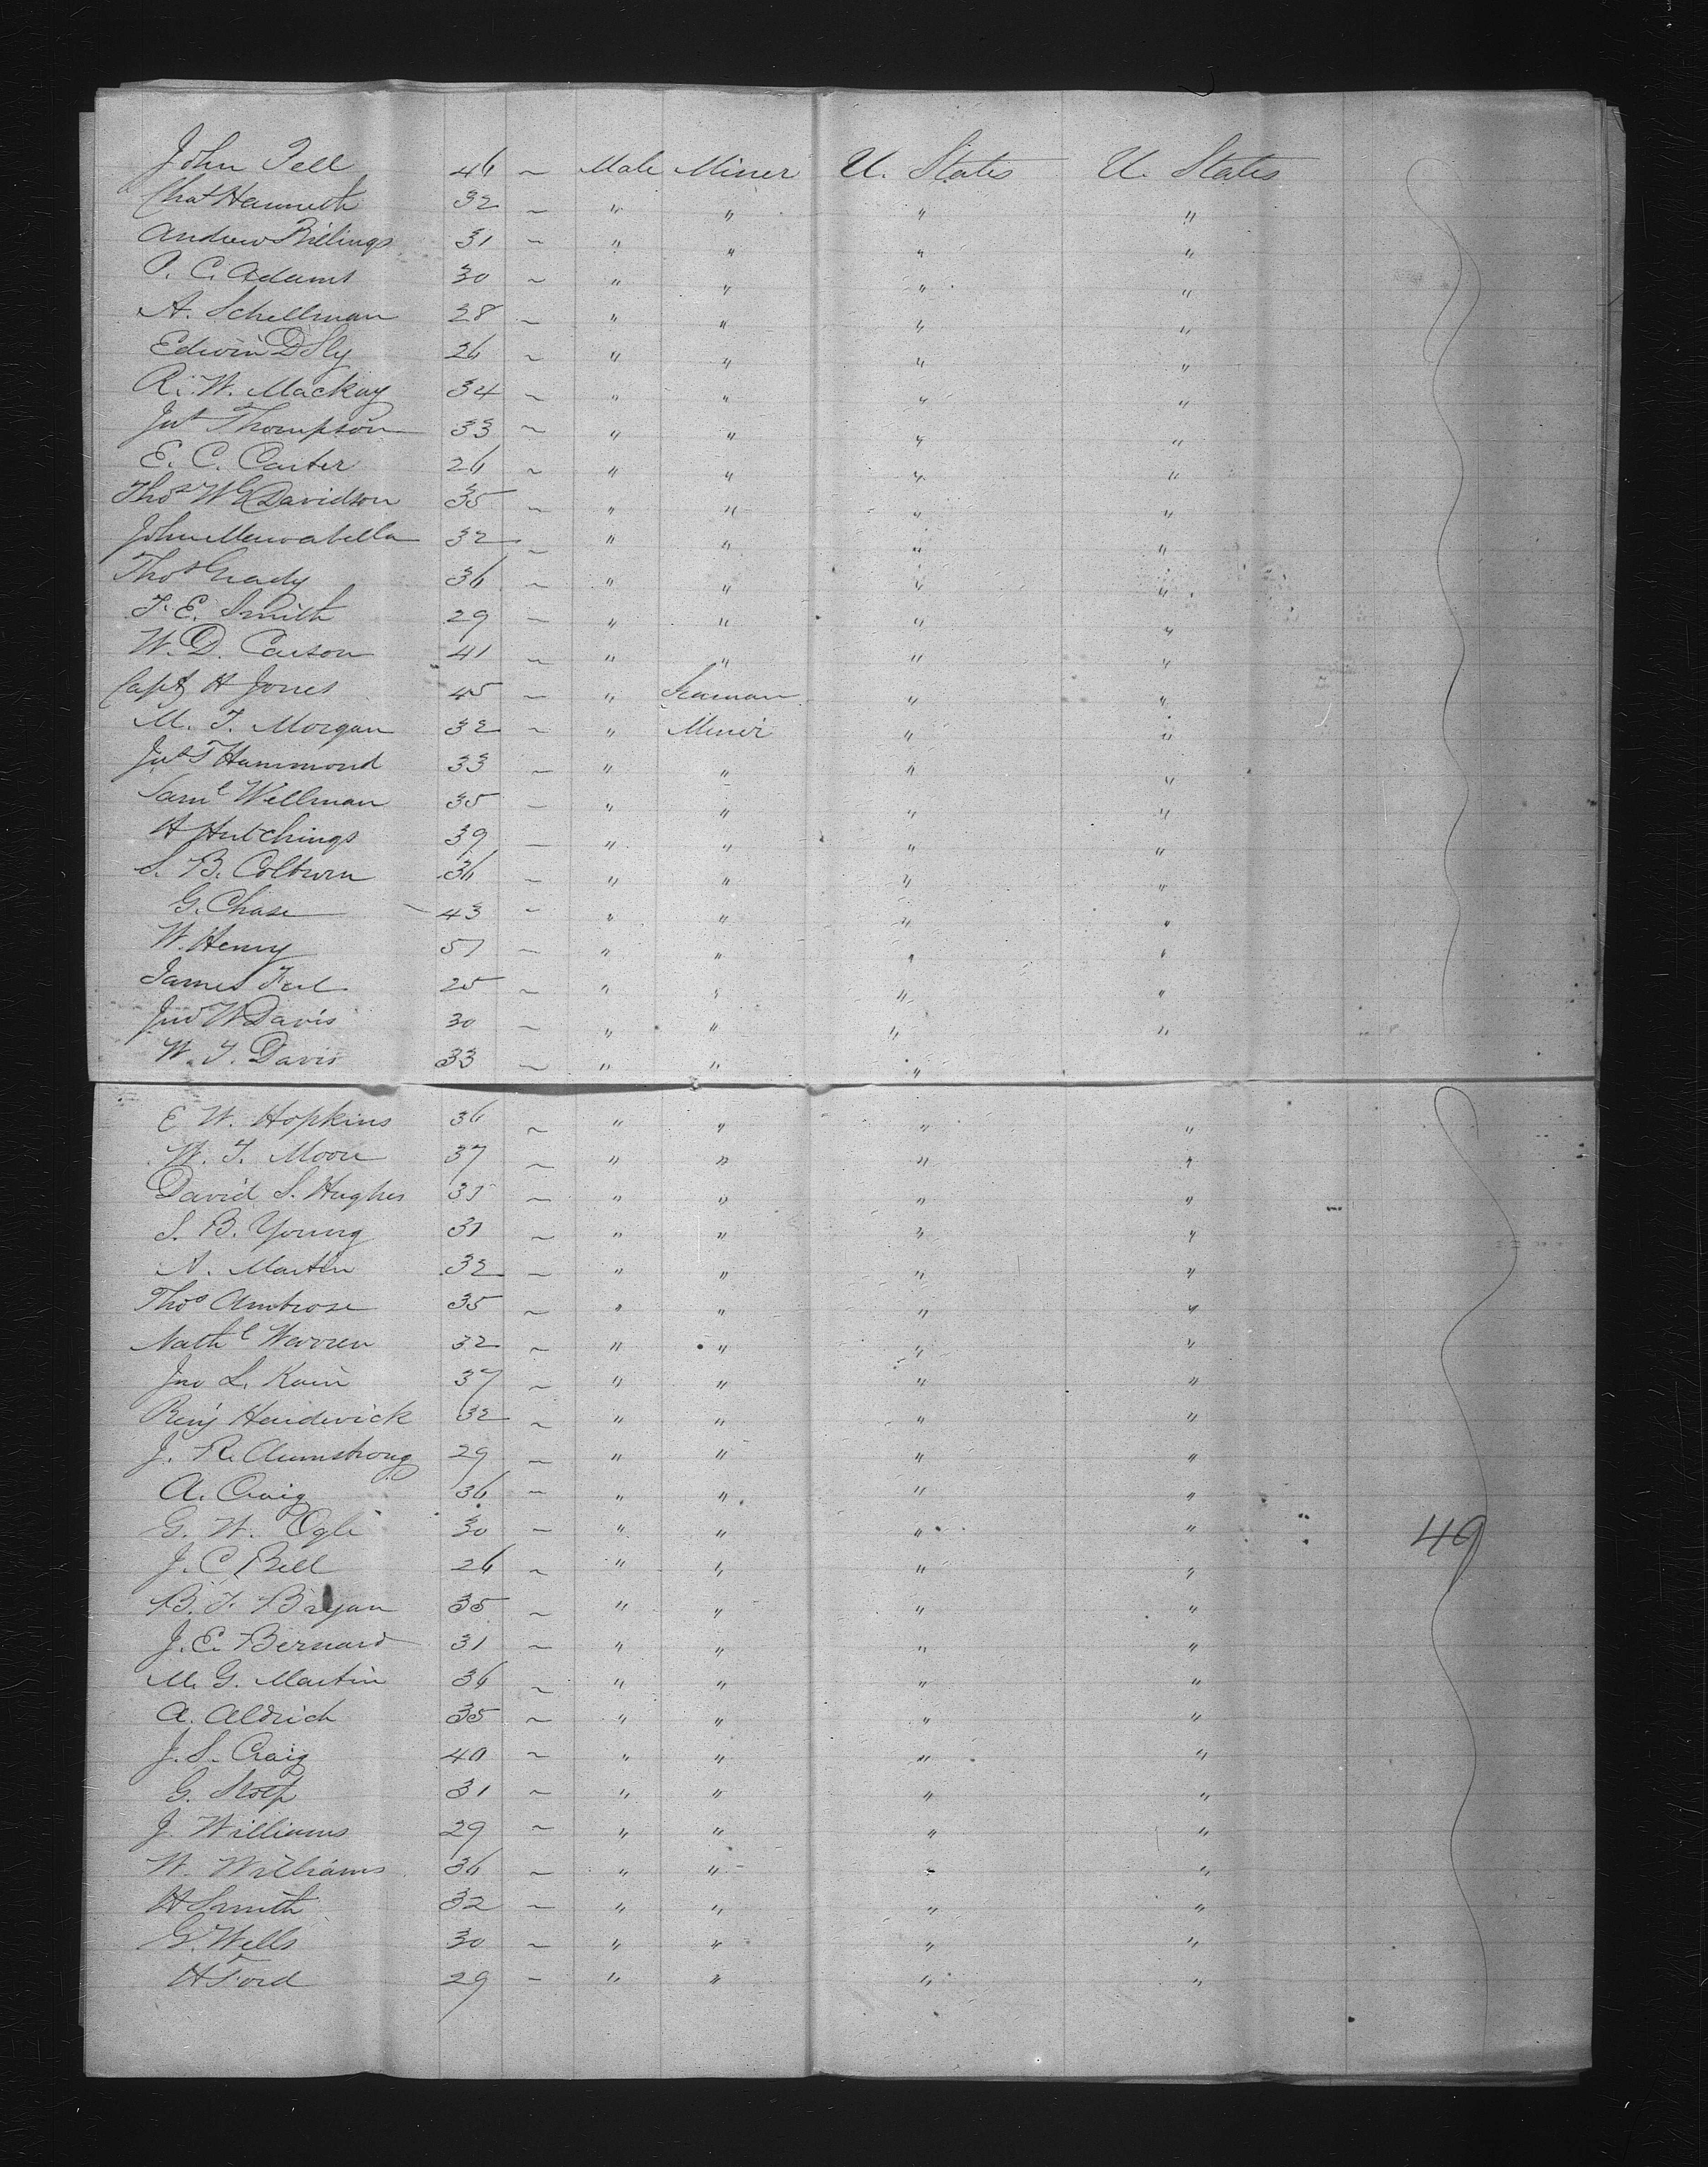 John Tell 46 ~ Male Miner U. States U. States
Chas 32 ~ " " " "
Andrew Billings 31 ~ " " " "
P. C. Adams 30 ~ " " " "
A. Schellman 28 ~ " " " "
Edwin D Sly 26 ~ " " " "
R. W. Mackay 34 ~ " " " "
Jas Thompson 33 ~ " " " "
E. C. Carter 26 ~ " " " "
Thos W G Davidson 35 ~ " " " "
John 32 ~ " " " "
Thos Grady 36 ~ " " " "
T. E. Smith 29 ~ " " " "
W. D. Carson 41 ~ " " " "
Capt H Jones 45 ~ " Seaman " "
M. T. Morgan 32 ~ " Miner " "
Jas T Hammond 33 ~ " " " "
Saml Wellman 35 ~ " " " "
H Hutchings 39 ~ " " " "
S. B. Colburn 36 ~ " " " "
G. Chase 43 ~ " " " "
W. Henry 57 ~ " " " "
James 25 ~ " " " "
Jno W Davis 30 ~ " " " "
W. T. Davis 33 ~ " " " "
E W. Hopkins 36 ~ " " " "
W. T. Moore 37 ~ " " " "
David S. Hughes 35 ~ " " " "
S. B. Young 31 ~ " " " "
A. Martin 32 ~ " " " "
Thos Ambrose 35 ~ " " " "
Nathl Warren 32 ~ " " " "
Jno L. Kain 37 ~ " " " "
Benj Hardwick 32 ~ " " " "
J. R. Armstrong 29 ~ " " " "
A. Craig 36 ~ " " " "
G. W. Ogle 30 ~ " " " " 49
J. C. Bell 26 ~ " " " "
B. T. Bryan 35 ~ " " " "
J. E. Bernard 31 ~ " " " "
M. G. Martin 36 ~ " " " "
A. Aldrich 35 ~ " " " "
J. S. Craig 40 ~ " " " "
G. 31 ~ " " " "
J. Williams 29 ~ " " " "
W. Williams 36 ~ " " " "
H Smith 32 ~ " " " "
G. Wells 30 ~ " " " "
H Ford 29 ~ " " " "